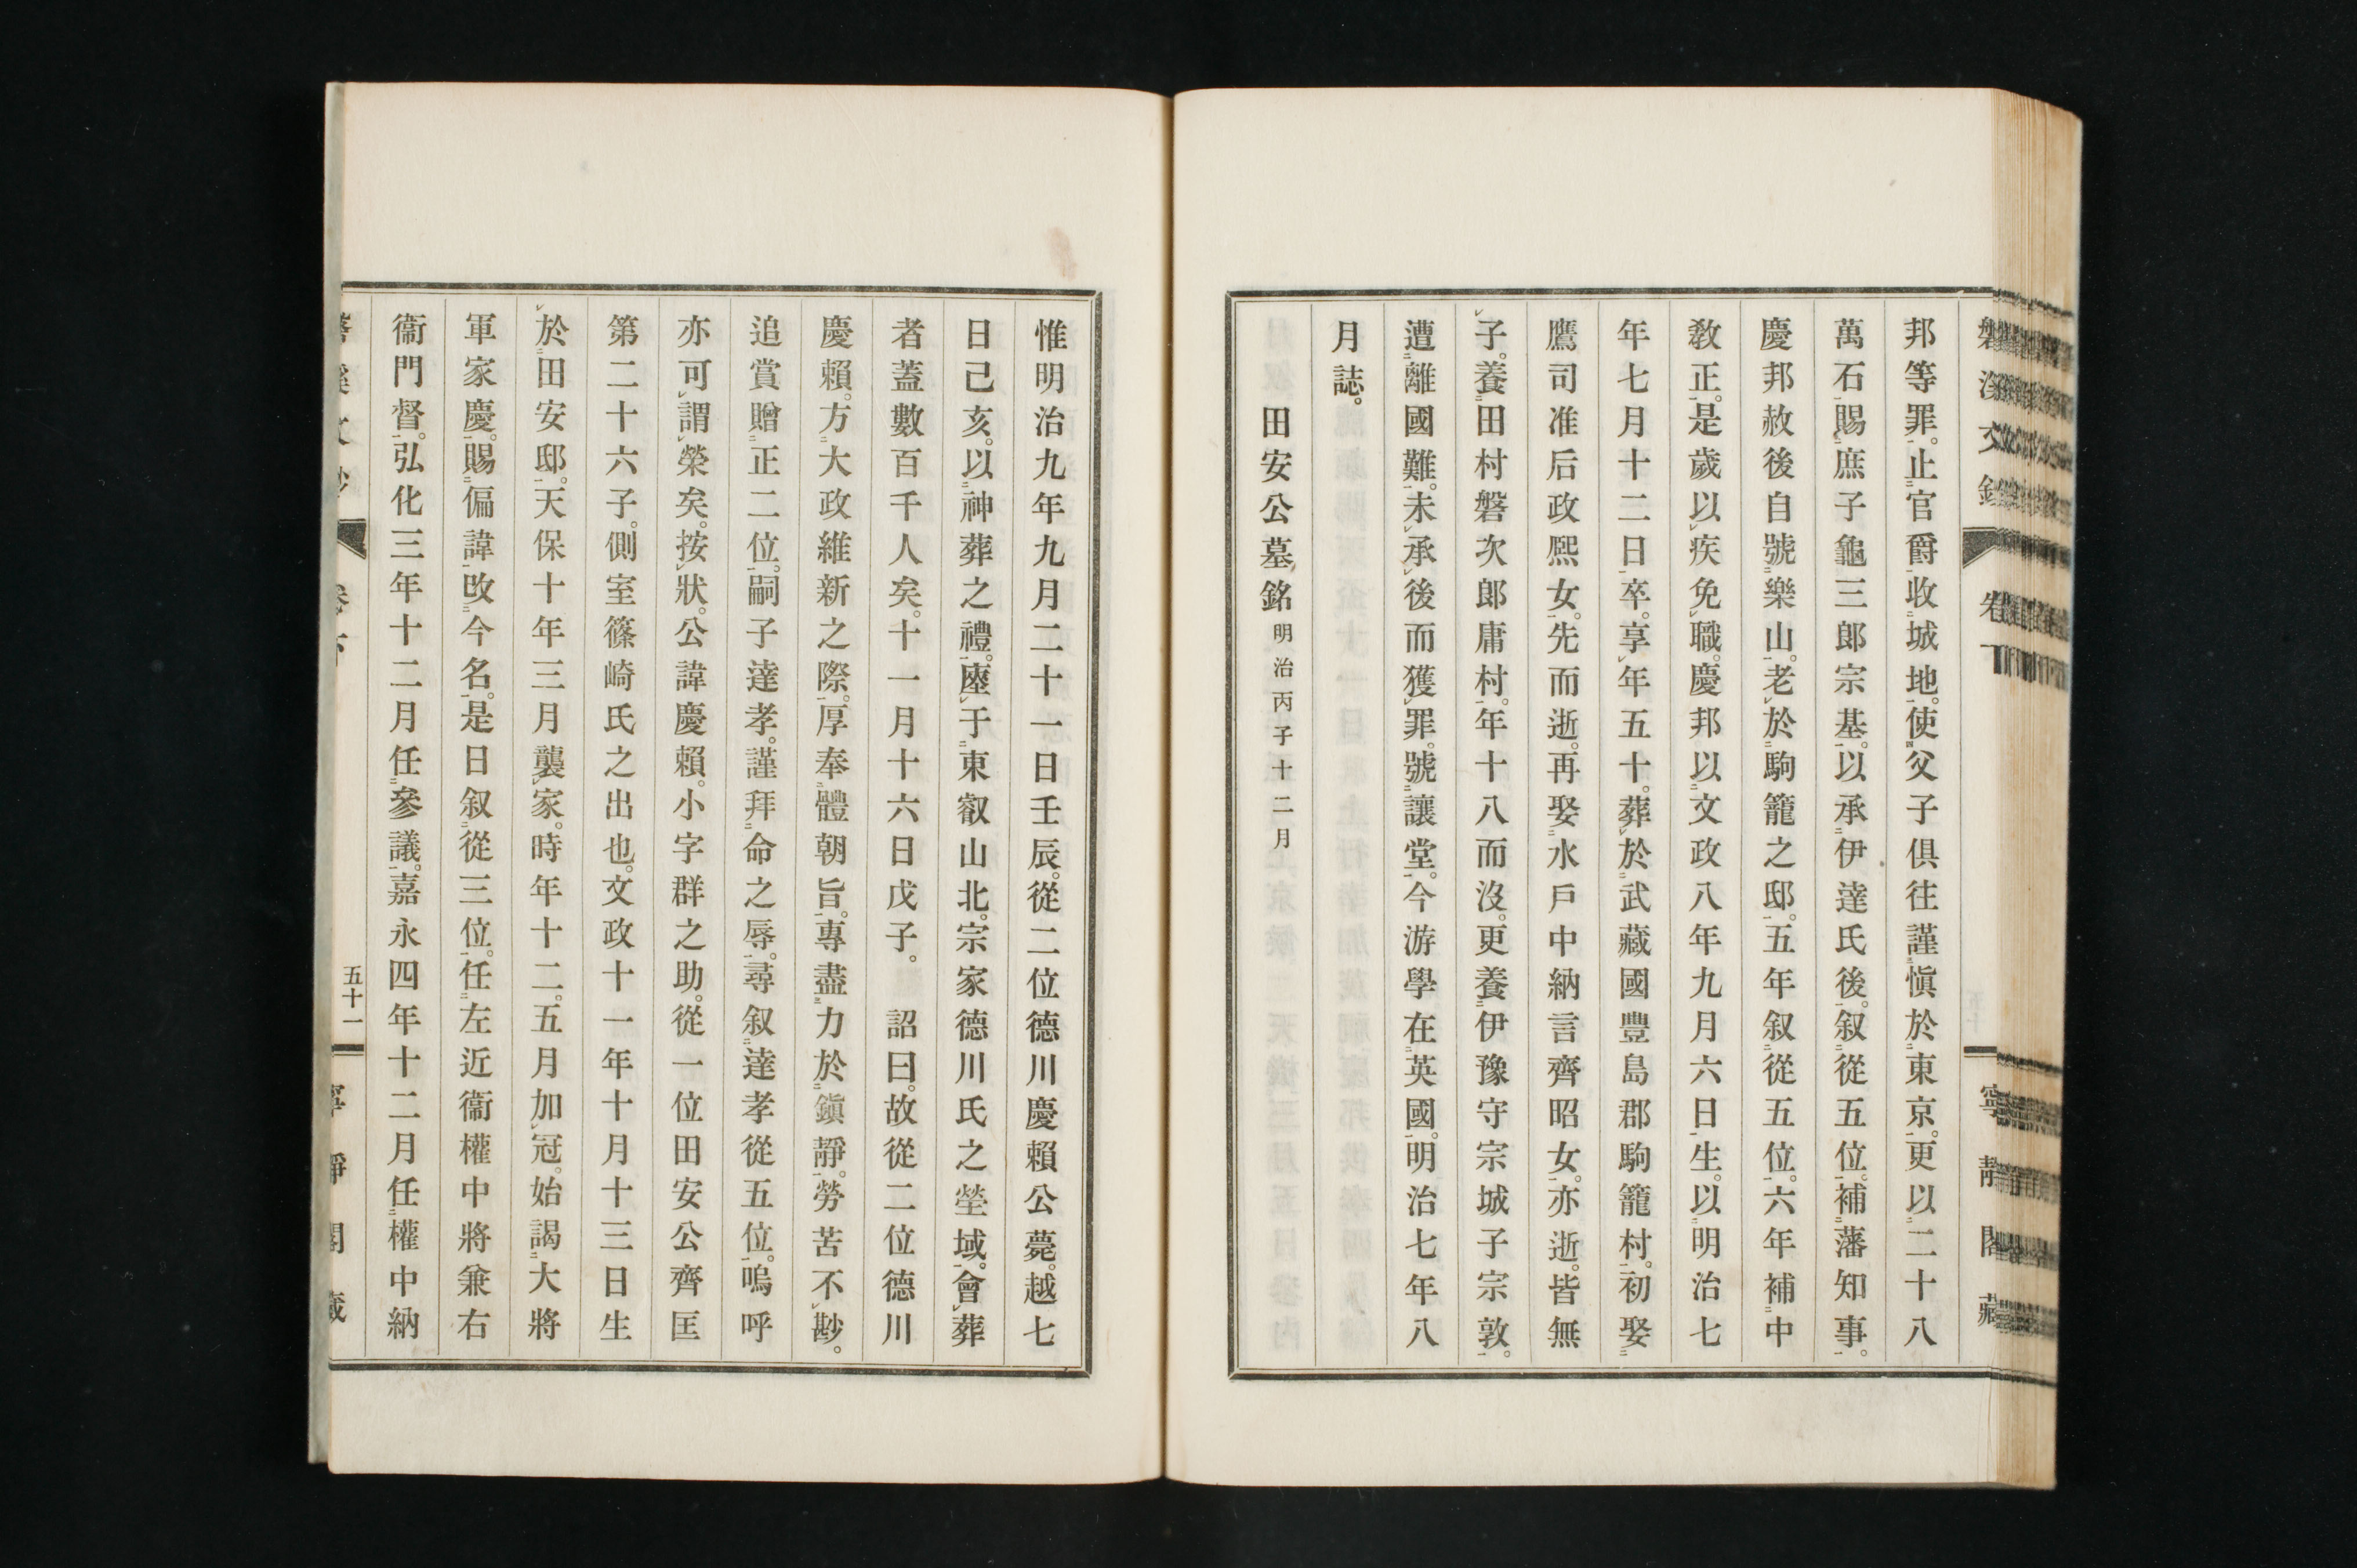 邦等罪。止官爵收城地。使父子俱往謹愼於東京。更以二十八
萬石賜庶子龜三郞宗基。以承伊達氏後。叙從五位。補藩知事。
慶邦赦後自號樂山。老於駒籠之邸。五年叙從五位。六年補中
敎正。是歲以疾免職。慶邦以文政八年九月六日生。以明治七
年七月十二日卒。享年五十。葬於武藏國豐島郡駒籠村。初娶
鷹司准后政熙女。先而逝。再娶水戶中納言齊昭女。亦逝。皆無
子。養田村磐次郞庸村。年十八而沒。更養伊豫守宗城子宗敦。
遭離國難。未承後而獲罪。號讓堂。今游學在英國。明治七年八
月誌。
田安公墓銘 明治丙子十二月
惟明治九年九月二十一日壬辰。從二位德川慶賴公薨。越七
日己亥。以神葬之禮。座于東叡山北。宗家德川氏之塋域。會葬
者蓋數百千人矣。十一月十六日戊子。 詔曰。故從二位德川
慶賴。方大政維新之際。厚奉體朝旨。專盡力於鎭靜。勞苦不尠。
追賞贈正二位。嗣子達孝。謹拜命之辱。尋叙達孝從五位。嗚呼
亦可謂榮矣。按狀。公諱慶賴。小字群之助。從一位田安公齊匡
第二十六子。側室篠崎氏之出也。文政十一年十月十三日生
於田安邸。天保十年三月襲家。時年十二。五月加冠。始謁大將
軍家慶。賜偏諱改今名。是日叙從三位。任左近衞權中將兼右
衞門督。弘化三年十二月任參議。嘉永四年十二月任權中納
五十一